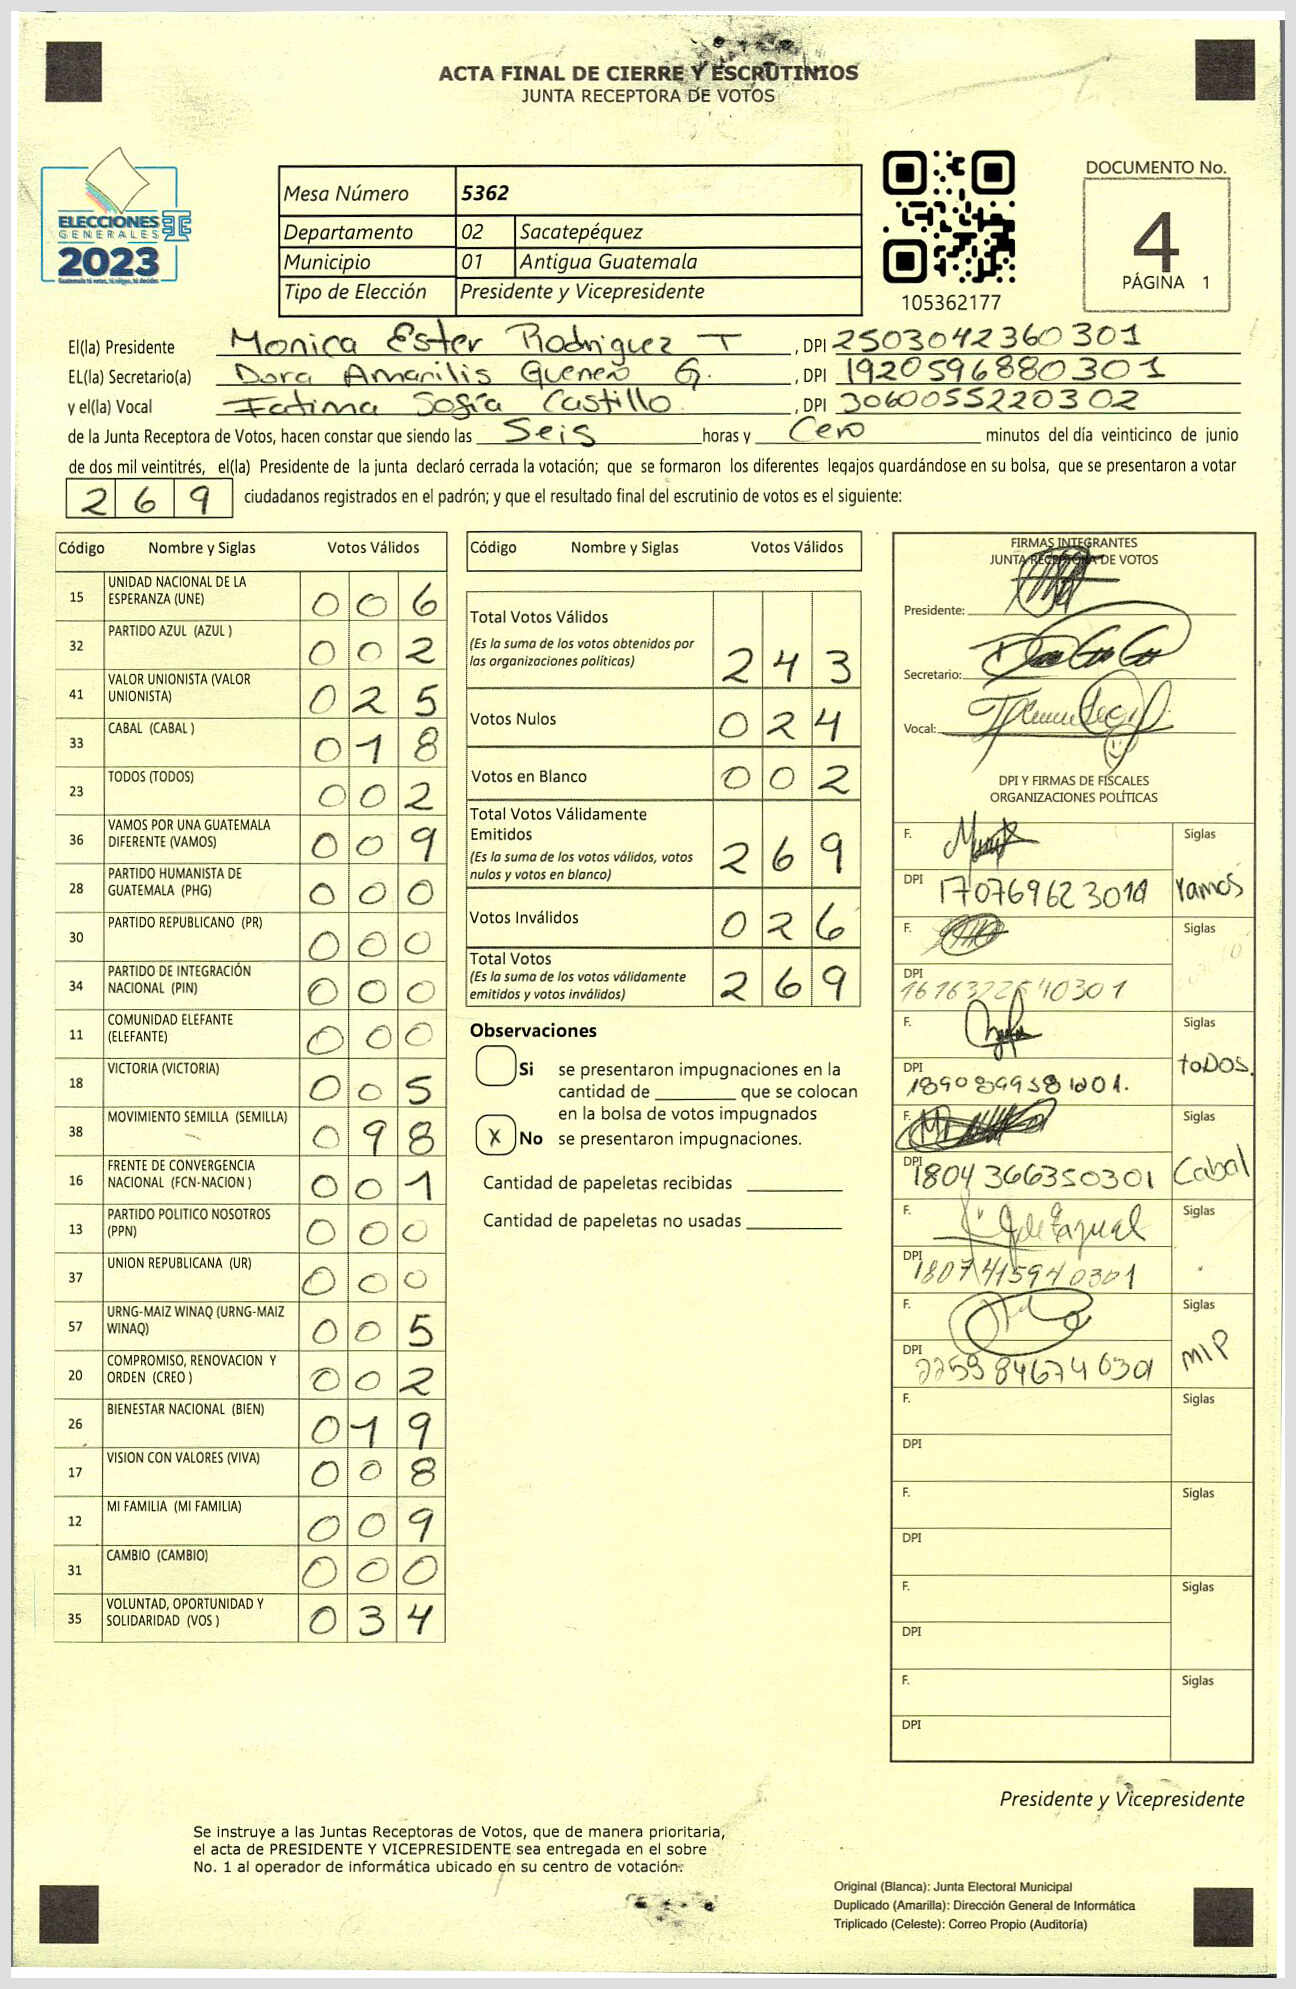 ACTA FINAL DE CIERRE Y ESCRUTINIOS
JUNTA RECEPTORA DE VOTOS
ELECCIONES
GENERALES
2023
Guatemala tú votas, tú eliges, tú decides
Mesa Número 5362
Departamento 02 Sacatepéquez
Municipio 01 Antigua Guatemala
Tipo de Elección Presidente y Vicepresidente
105362177
DOCUMENTO No.
4
PÁGINA 1
El(la) Presidente Monica Ester Rodriguez T , DPI 2503042360301
EL(la) Secretario(a) Dora Amarilis G. , DPI 1920596880301
y el(la) Vocal Fatima Sofía Castillo , DPI 3060055220302
de la Junta Receptora de Votos, hacen constar que siendo las Seis horas y Cero minutos del día veinticinco de junio
de dos mil veintitrés, el(la) Presidente de la junta declaró cerrada la votación; que se formaron los diferentes legajos guardándose en su bolsa, que se presentaron a votar
269 ciudadanos registrados en el padrón; y que el resultado final del escrutinio de votos es el siguiente:
Código Nombre y Siglas Votos Válidos
15 UNIDAD NACIONAL DE LA ESPERANZA (UNE) 006
32 PARTIDO AZUL (AZUL ) 002
41 VALOR UNIONISTA (VALOR UNIONISTA) 025
33 CABAL (CABAL ) 018
23 TODOS (TODOS) 002
36 VAMOS POR UNA GUATEMALA DIFERENTE (VAMOS) 009
28 PARTIDO HUMANISTA DE GUATEMALA (PHG) 000
30 PARTIDO REPUBLICANO (PR) 000
34 PARTIDO DE INTEGRACIÓN NACIONAL (PIN) 000
11 COMUNIDAD ELEFANTE (ELEFANTE) 000
18 VICTORIA (VICTORIA) 005
38 MOVIMIENTO SEMILLA (SEMILLA) 098
16 FRENTE DE CONVERGENCIA NACIONAL (FCN-NACION ) 001
13 PARTIDO POLITICO NOSOTROS (PPN) 000
37 UNION REPUBLICANA (UR) 000
57 URNG-MAIZ WINAQ (URNG-MAIZ WINAQ) 005
20 COMPROMISO, RENOVACION Y ORDEN (CREO ) 002
26 BIENESTAR NACIONAL (BIEN) 019
17 VISION CON VALORES (VIVA) 008
12 MI FAMILIA (MI FAMILIA) 009
31 CAMBIO (CAMBIO) 000
35 VOLUNTAD, OPORTUNIDAD Y SOLIDARIDAD (VOS ) 034
Código Nombre y Siglas Votos Válidos
Total Votos Válidos
(Es la suma de los votos obtenidos por
las organizaciones políticas) 243
Votos Nulos 024
Votos en Blanco 002
Total Votos Válidamente
Emitidos
(Es la suma de los votos válidos, votos
nulos y votos en blanco) 269
Votos Inválidos 026
Total Votos
(Es la suma de los votos válidamente
emitidos y votos inválidos) 269
Observaciones
Si se presentaron impugnaciones en la
cantidad de que se colocan
en la bolsa de votos impugnados
X No se presentaron impugnaciones.
Cantidad de papeletas recibidas
Cantidad de papeletas no usadas
FIRMAS INTEGRANTES
JUNTA RECEPTORA DE VOTOS
Presidente:
Secretario:
Vocal:
DPI Y FIRMAS DE FISCALES
ORGANIZACIONES POLÍTICAS
F. Siglas
DPI Vamos
F. Siglas
DPI
F. Siglas
DPI toDOS.
F. Siglas
DPI 1804366350301 Cabal
F. Siglas
DPI 1807415940301
F. Siglas
DPI 2259846740301 MLP
F. Siglas
DPI
F. Siglas
DPI
F. Siglas
DPI
F. Siglas
DPI
Presidente y Vicepresidente
Se instruye a las Juntas Receptoras de Votos, que de manera prioritaria,
el acta de PRESIDENTE Y VICEPRESIDENTE sea entregada en el sobre
No. 1 al operador de informática ubicado en su centro de votación.
Original (Blanca): Junta Electoral Municipal
Duplicado (Amarilla): Dirección General de Informática
Triplicado (Celeste): Correo Propio (Auditoría)